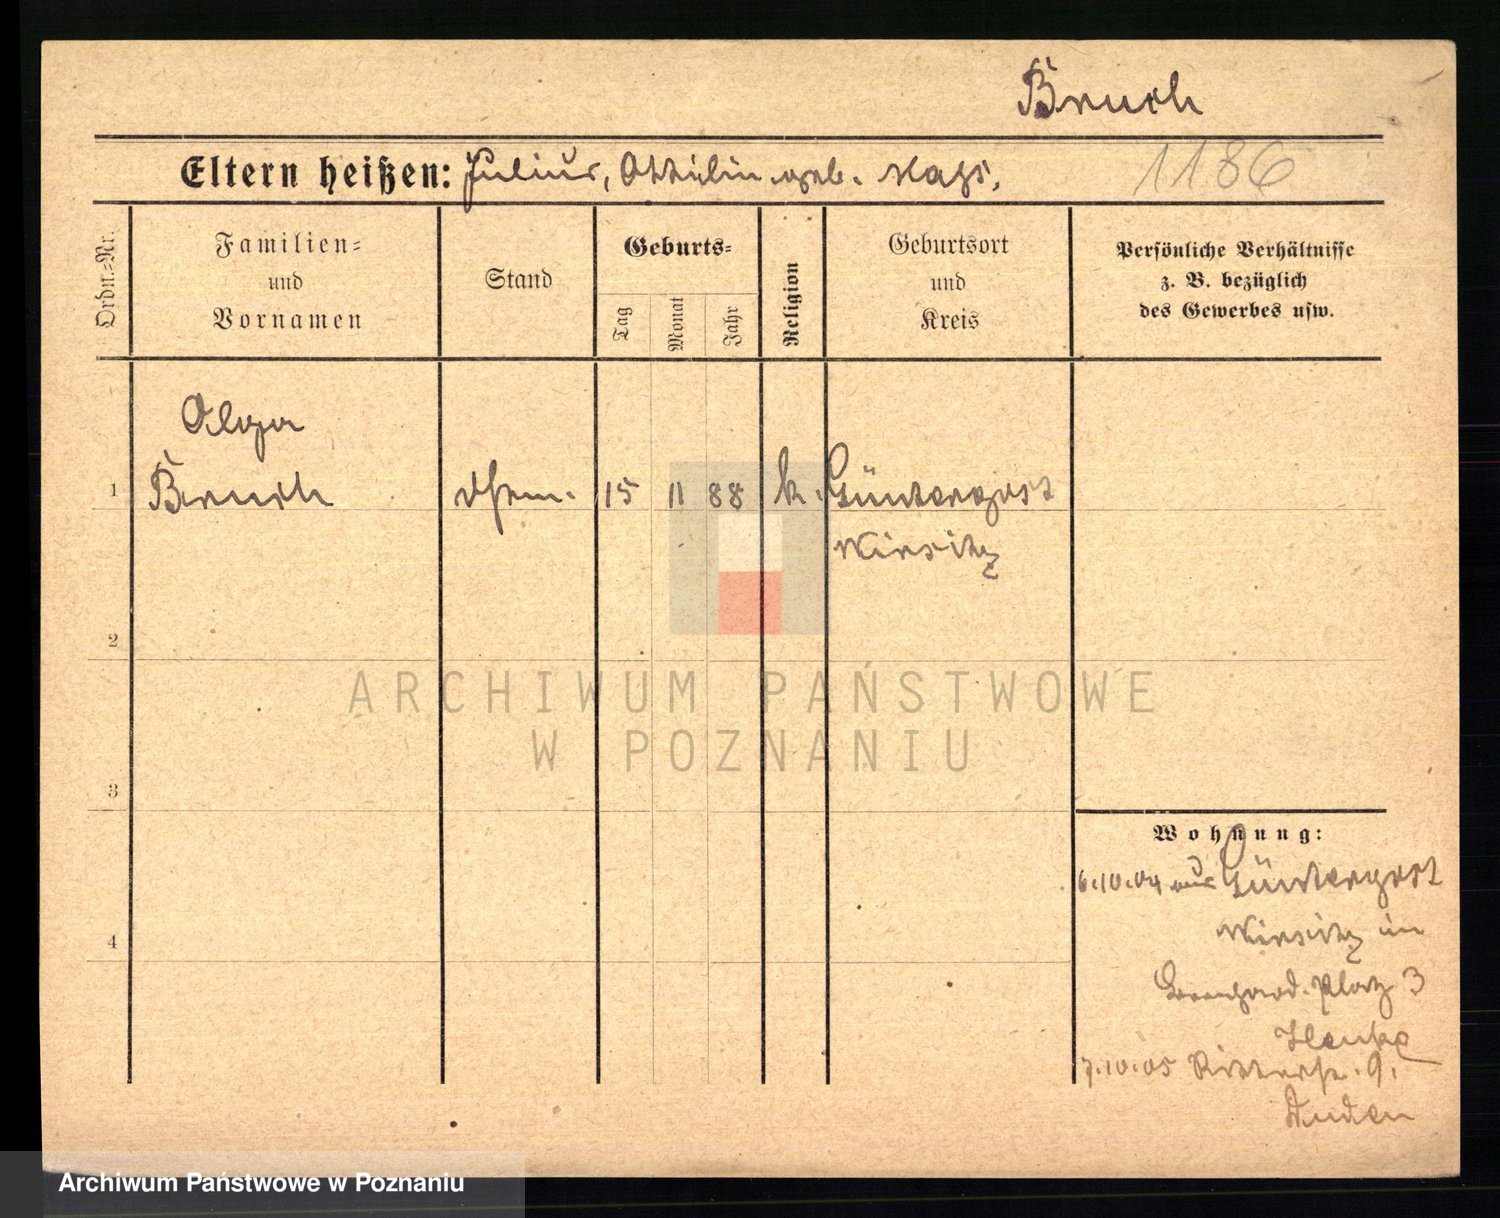 Bruch
Eltern heißen: Julius, Ottilie geb.
1186
Ordn.-Nr.
Familien-
und
Vornamen
Stand
Geburts-
Tag
Monat
Jahr
Religion
Geburtsort
und
Kreis
Persönliche Verhältnisse
z. B. bezüglich
des Gewerbes usw.
Olga
1 Bruch 15 11 88 k. Güntergost
Wirsitz
2
ARCHIWUM PAŃSTWOWE
W POZNANIU
3
Wohnung:
6.10.04 aus Güntergost
Wirsitz in
Bernhard. Platz 3
7.10.05 Ritterstr. 9.
4
Archiwum Państwowe w Poznaniu